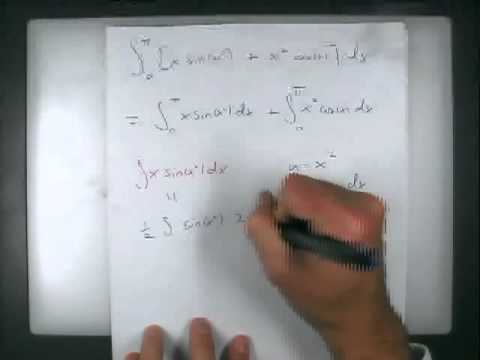 ∫₀^π [x sin(x²) + x² cos(x)] dx
= ∫₀^π x sin(x²) dx + ∫₀^π x² cos x dx
∫ x sin(x²) dx u = x²
dx
½ ∫ sin(x²) 2